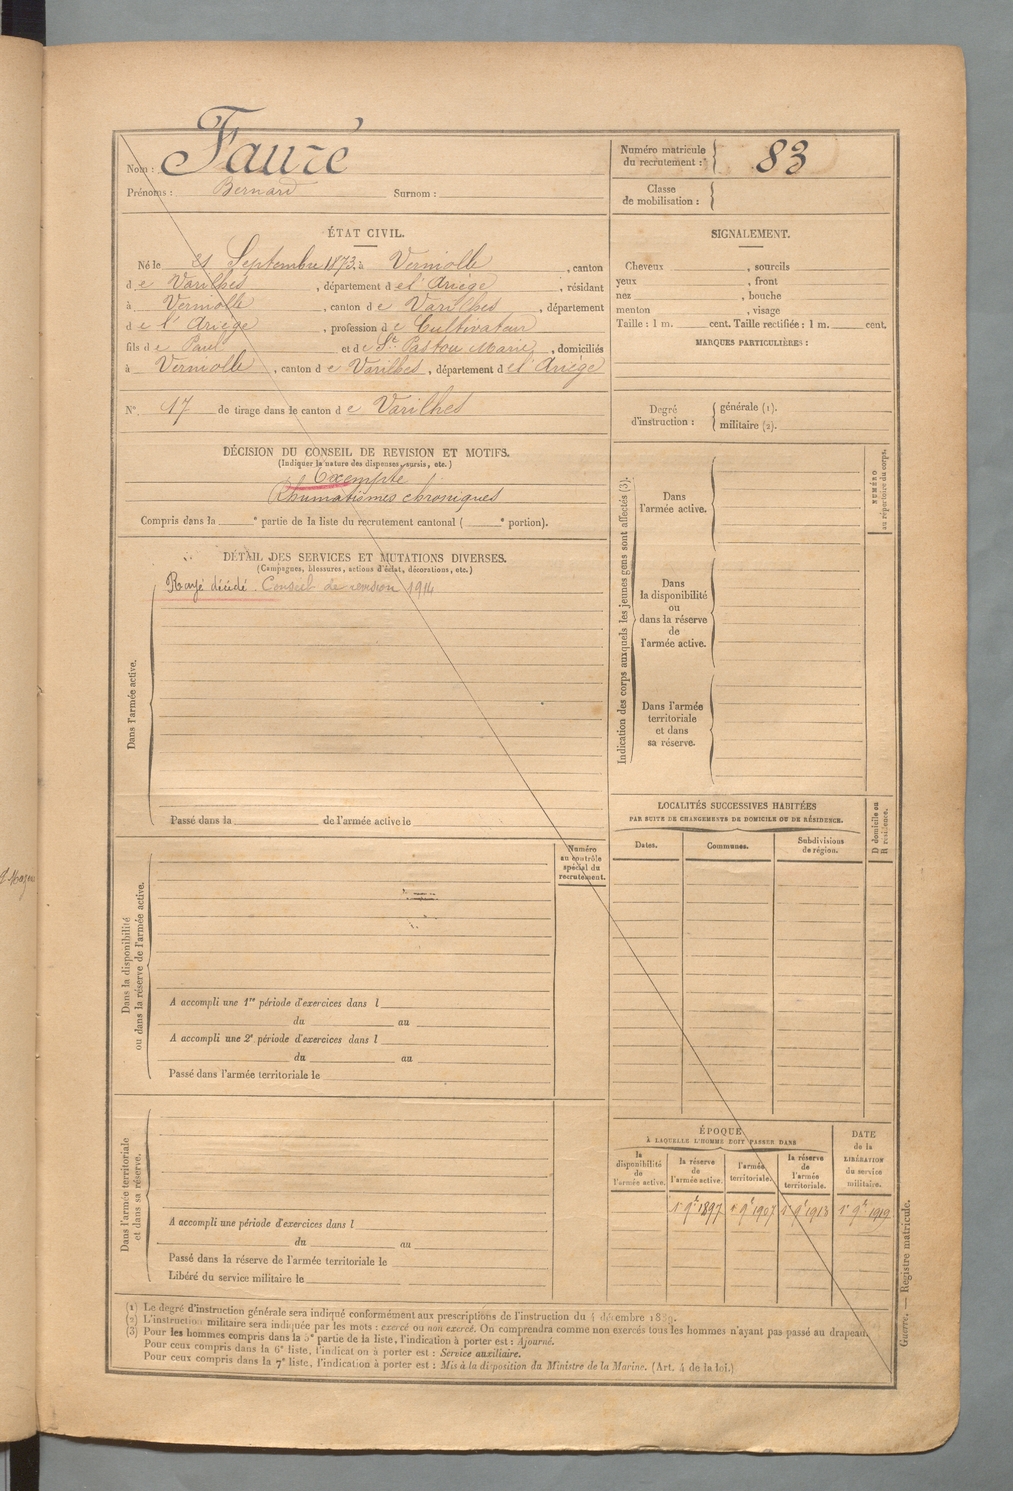 Nom : Fauré
Prénoms : Bernard Surnom :
Numéro matricule
du recrutement : 83
Classe
de mobilisation :
ÉTAT CIVIL.
Né le 21 Septembre 1873, à Verniolle, canton
de Varilhes, département de l'Ariège, résidant
à Verniolle, canton de Varilhes, département
de l'Ariège, profession de Cultivateur
fils de Paul et de St Pastou Marie, domiciliés
à Verniolle, canton de Varilhes, département de l'Ariège
N° 17 de tirage dans le canton de Varilhes
DÉCISION DU CONSEIL DE REVISION ET MOTIFS.
(Indiquer la nature des dispenses, sursis, etc.)
Exempté
Rhumatismes chroniques
Compris dans la e partie de la liste du recrutement cantonal ( e portion).
DÉTAIL DES SERVICES ET MUTATIONS DIVERSES.
(Campagnes, blessures, actions d'éclat, décorations, etc.)
Rayé décédé. Conseil de revision 1914
Dans l'armée active.
Passé dans la de l'armée active le
Dans la disponibilité
ou dans la réserve de l'armée active.
Numéro
au contrôle
spécial du
recrutement.
A accompli une 1re période d'exercices dans l
du au
A accompli une 2e période d'exercices dans l
du au
Passé dans l'armée territoriale le
Dans l'armée territoriale
et dans sa réserve.
A accompli une période d'exercices dans l
du au
Passé dans la réserve de l'armée territoriale le
Libéré du service militaire le
SIGNALEMENT.
Cheveux , sourcils
yeux , front
nez , bouche
menton , visage
Taille : 1 m. cent. Taille rectifiée : 1 m. cent.
MARQUES PARTICULIÈRES :
Degré
d'instruction :
générale (1).
militaire (2).
Indication des corps auxquels les jeunes gens sont affectés (3).
Dans
l'armée active.
Dans
la disponibilité
ou
dans la réserve
de
l'armée active.
Dans l'armée
territoriale
et dans
sa réserve.
NUMÉRO
au répertoire du corps.
LOCALITÉS SUCCESSIVES HABITÉES
PAR SUITE DE CHANGEMENTS DE DOMICILE OU DE RÉSIDENCE.
Dates. Communes. Subdivisions
de région.
D domicile ou
R résidence.
ÉPOQUE
À LAQUELLE L'HOMME DOIT PASSER DANS
la
disponibilité
de
l'armée active.
la réserve
de
l'armée active.
l'armée
territoriale.
la réserve
de
l'armée
territoriale.
DATE
de la
LIBÉRATION
du service
militaire.
1r 9e 1897 1r 9e 1907 1r 9e 1913 1r 9e 1919
(1) Le degré d'instruction générale sera indiqué conformément aux prescriptions de l'instruction du 4 décembre 1889.
(2) L'instruction militaire sera indiquée par les mots : exercé ou non exercé. On comprendra comme non exercés tous les hommes n'ayant pas passé au drapeau.
(3) Pour les hommes compris dans la 5e partie de la liste, l'indication à porter est : Ajourné.
Pour ceux compris dans la 6e liste, l'indication à porter est : Service auxiliaire.
Pour ceux compris dans la 7e liste, l'indication à porter est : Mis à la disposition du Ministre de la Marine. (Art. 4 de la loi.)
Guerre. — Registre matricule.